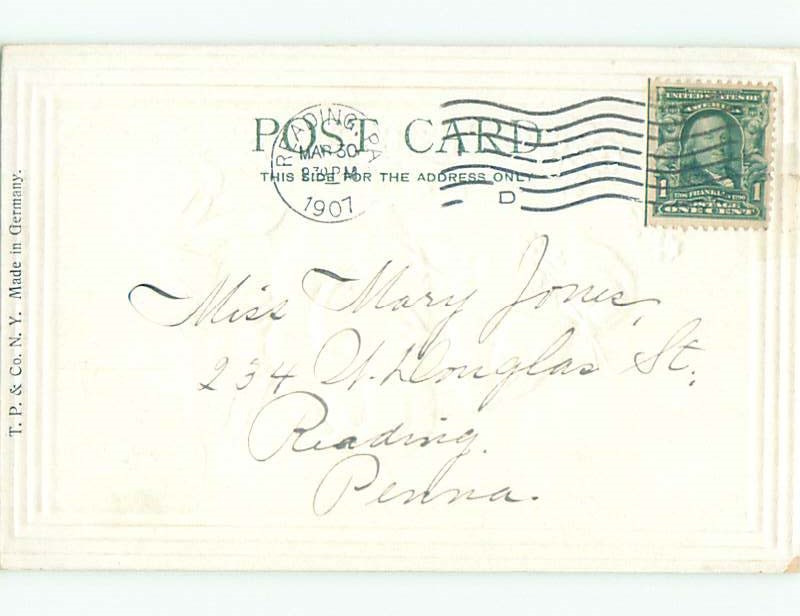 POST CARD
THIS SIDE FOR THE ADDRESS ONLY
READING, PA
MAR 30
30 PM
1907
D
SERIES 1902
UNITED STATES OF
AMERICA
1706 FRANKLIN 1790
1 1
POSTAGE
ONE CENT
Miss Mary Jones,
234 W. Douglas St.
Reading.
Penna.
T. P. & Co. N. Y. Made in Germany.